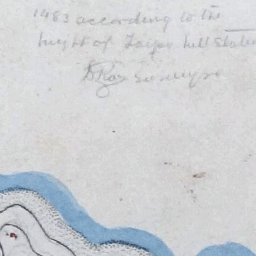 1483 according to the
hight of Taipo hill Station
surveyor